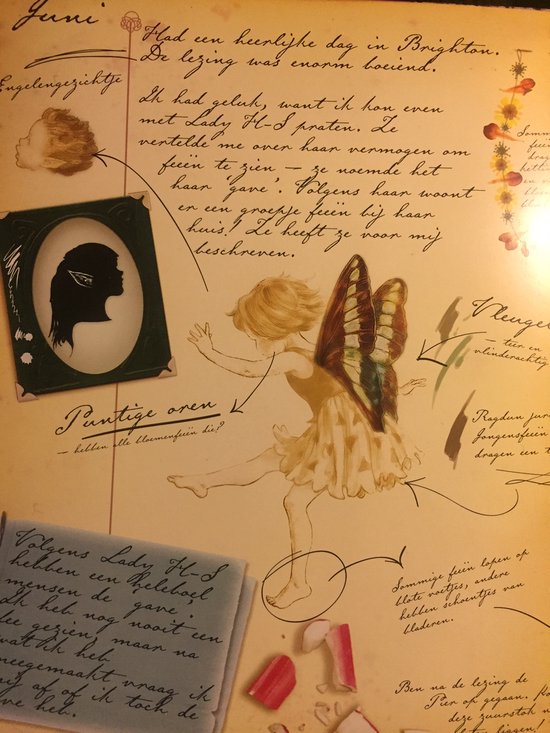 Juni
Had een heerlijke dag in Brighton.
De lezing was enorm boeiend.
Engelengezichtje
Ik had geluk, want ik kon even
met Lady H-S praten. Ze
vertelde me over haar vermogen om
feeën te zien – ze noemde het
haar 'gave'. Volgens haar woont
er een groepje feeën bij haar
huis! Ze heeft ze voor mij
beschreven.
Puntige oren
– hebben alle bloemenfeeën die?
– teer en
vlinderachtig
Jongensfeeën
dragen een
Sommige feeën lopen op
blote voetjes, andere
hebben schoentjes van
bladeren.
Volgens Lady H-S
hebben een heleboel
mensen de 'gave'.
Ik heb nog nooit een
fee gezien, maar na
wat ik heb
meegemaakt vraag ik
mij af of ik toch de
heb.
Ben na de lezing de
Pier op gegaan.
deze zuurstok
liggen!